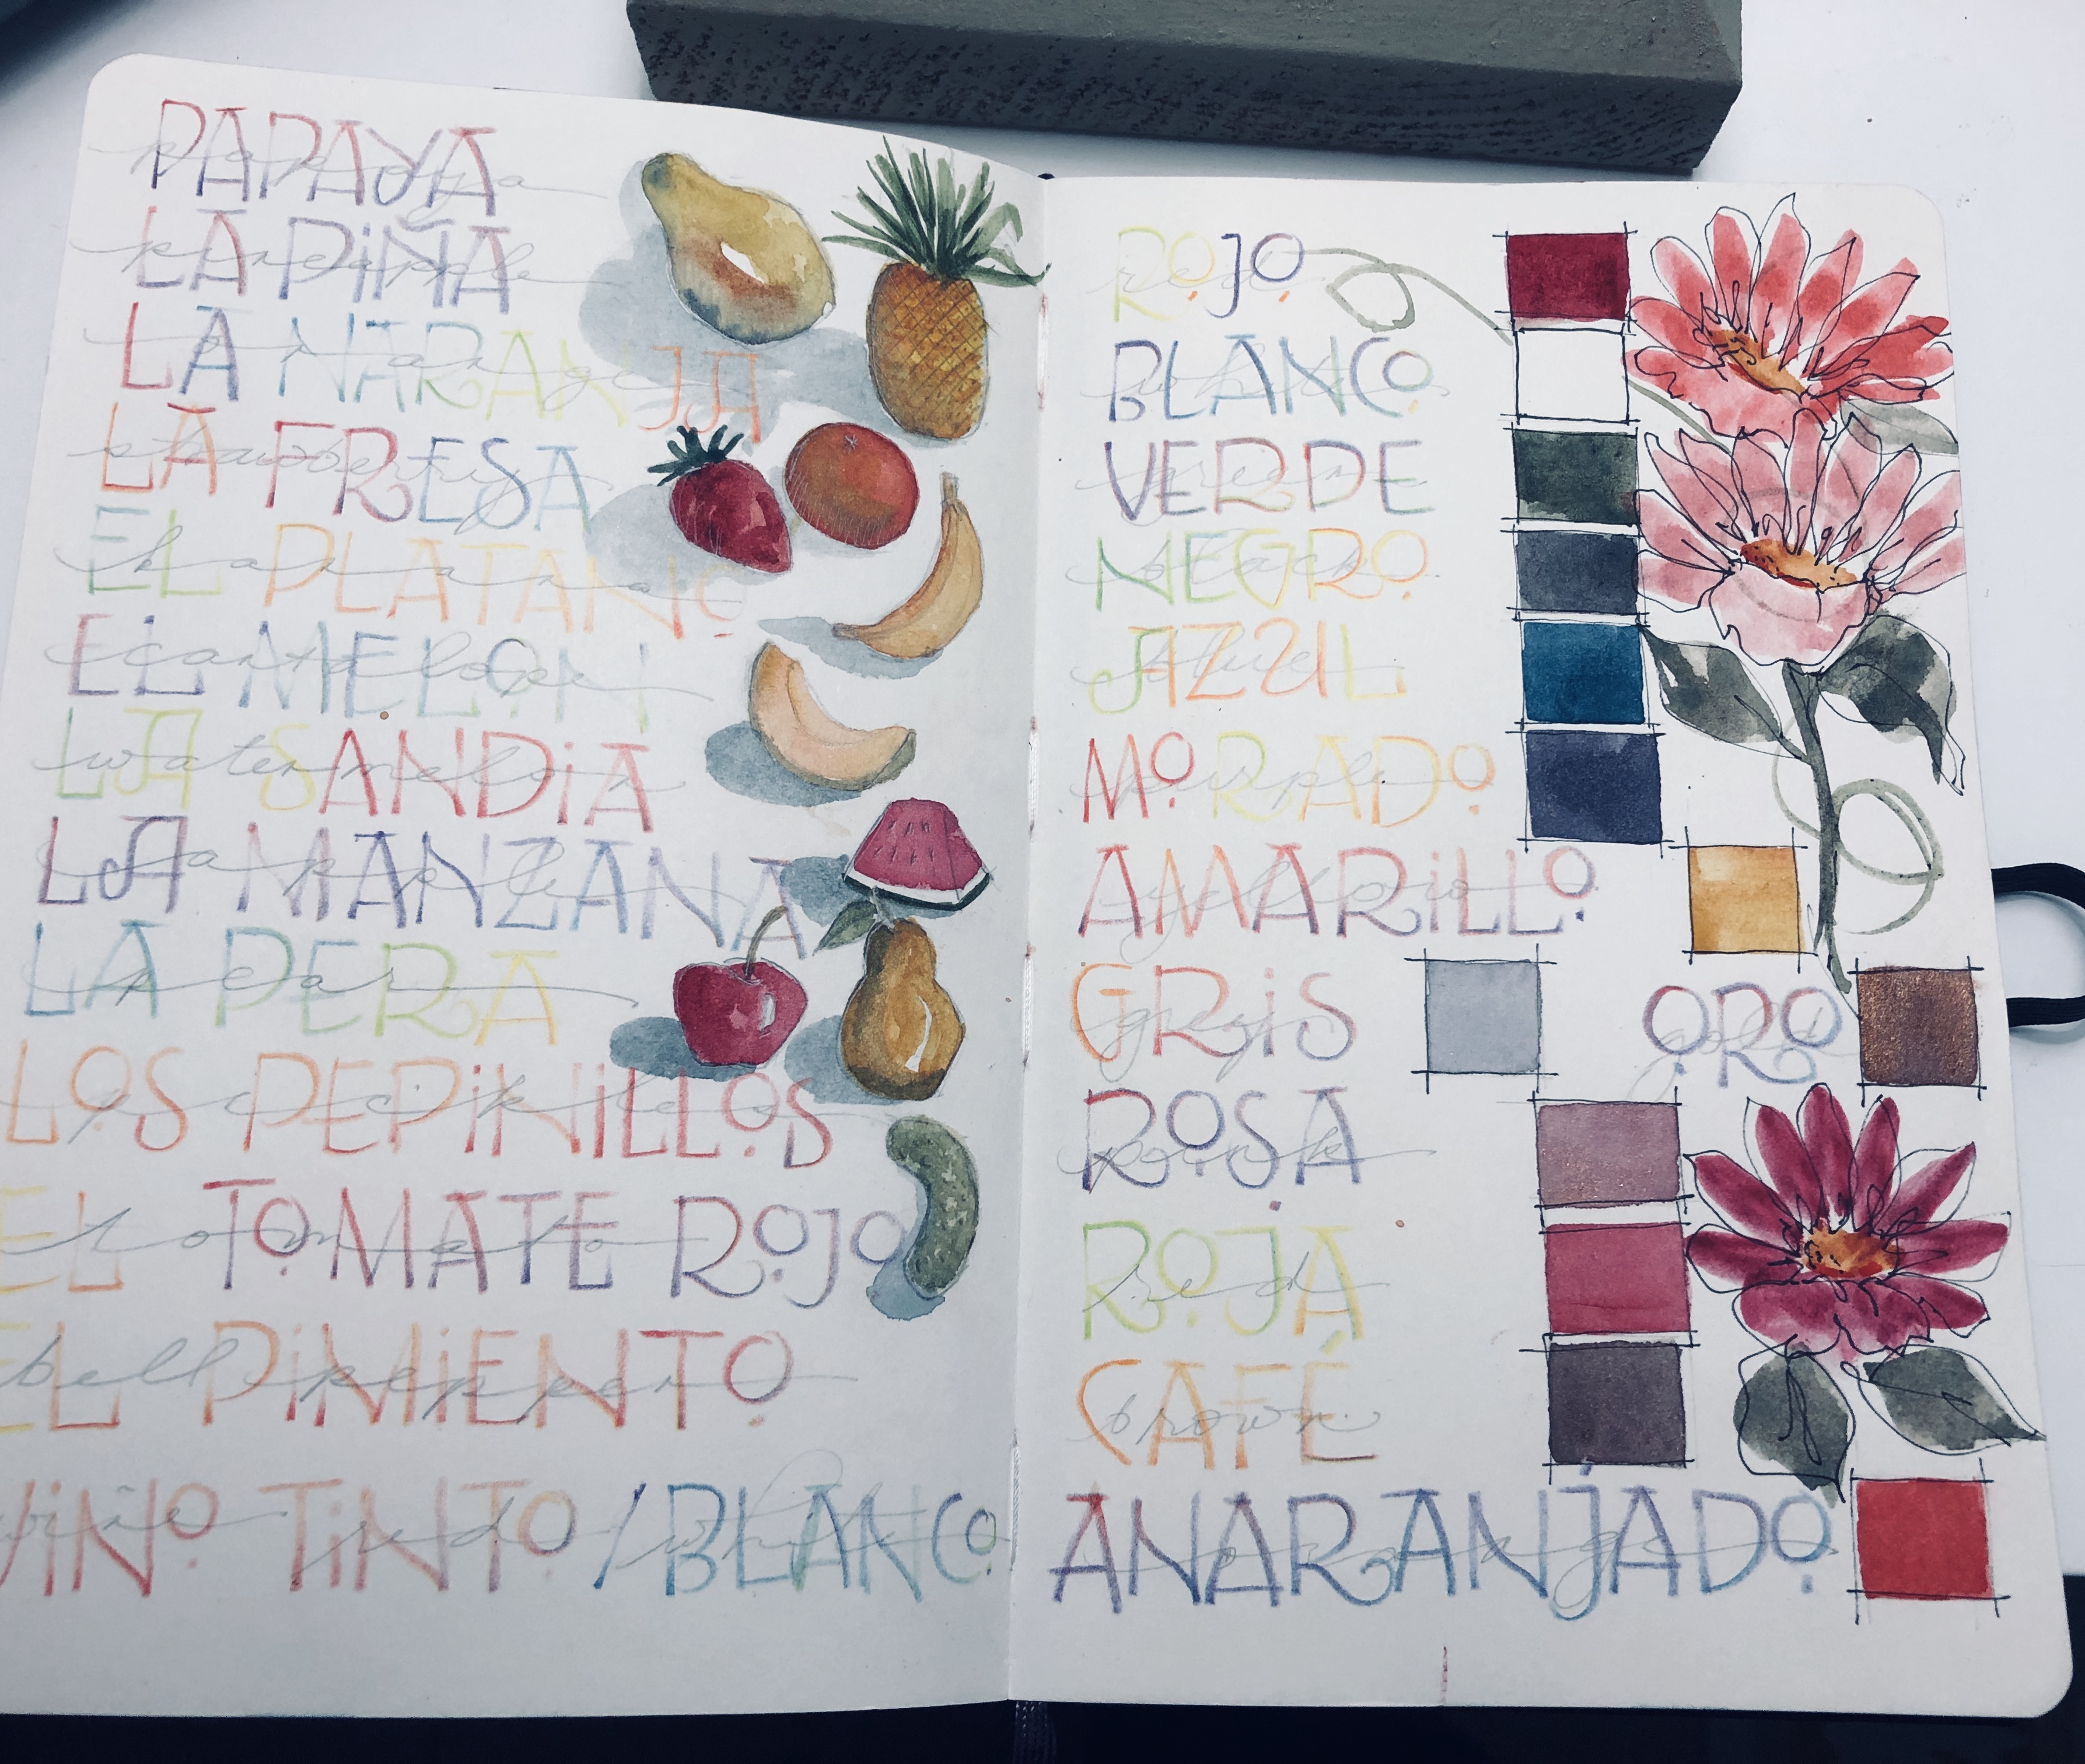 PAPAYA
papaya
LA PIÑA
pineapple
LA NARANJA
orange
LA FRESA
strawberry
EL PLATANO
banana
EL MELON
cantelope
LA SANDiA
watermelon
LA MANZANA
apple
LA PERA
pear
LOS PEPiNiLLOS
pickles
EL TOMATE ROJO
tomato
EL PiMiENTO
bell pepper
ViNO TiNTO / BLANCO
wine red white
ROJO
red
BLANCO
white
VERDE
green
NEGRO
black
AZUL
blue
MORADO
purple
AMARiLLO
yellow
GRiS ORO
grey gold
ROSA
pink
ROJA
red
CAFÉ
brown
ANARANJADO
orange